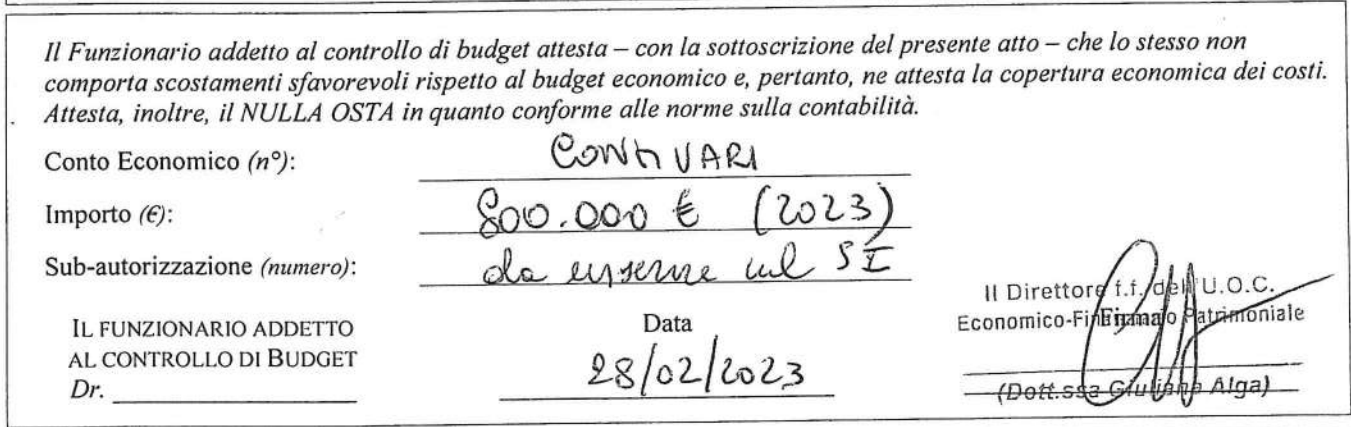 Il Funzionario addetto al controllo di budget attesta – con la sottoscrizione del presente atto – che lo stesso non
comporta scostamenti sfavorevoli rispetto al budget economico e, pertanto, ne attesta la copertura economica dei costi.
Attesta, inoltre, il NULLA OSTA in quanto conforme alle norme sulla contabilità.
Conto Economico (n°): CONTI VARI
Importo (€): 800.000 € (2023)
Sub-autorizzazione (numero): da inserire sul SI
Il Direttore f.f. dell'U.O.C.
Economico-Finanziario Patrimoniale
IL FUNZIONARIO ADDETTO
AL CONTROLLO DI BUDGET
Dr.
Data
28/02/2023
Firma
(Dott.ssa Giuliana Alga)